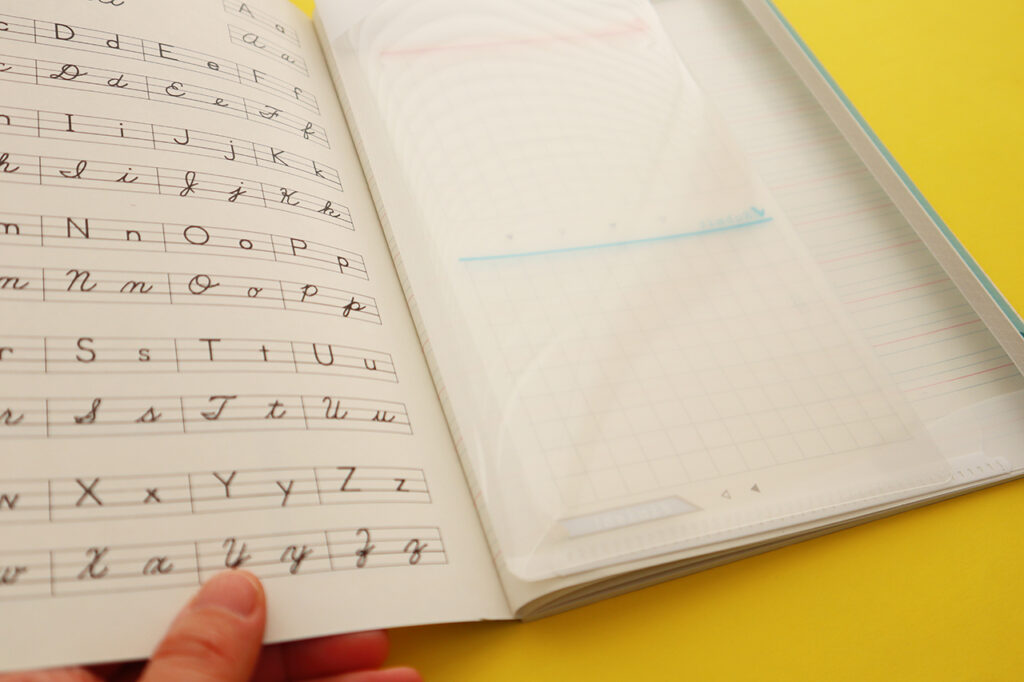 A a
A a
D d E e F f
D d E e F f
I i J j K k
I i J j K k
N n O o P p
N n O o P p
S s T t U u
S s T t U u
X x Y y Z z
X x Y y Z z